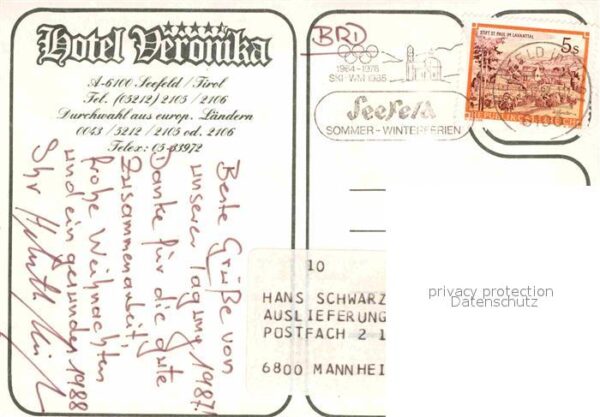 Hotel Veronika
A-6100 Seefeld / Tirol
Tel. (05212) 2105 / 2106
Durchwahl aus europ. Ländern
0043 / 5212 / 2105 od. 2106
Telex: 05-33972
Beste Grüße von
unserer Tagung 1987!
Danke für die gute
Zusammenarbeit,
frohe Weihnachten
und ein gesundes 1988
Ihr
BRD
1964-1976
SKI-WM 1985
Seefeld
SOMMER-WINTERFERIEN
STIFT ST. PAUL IM LAVANTTAL
5s
REPUBLIK
6100
10
HANS SCHWARZ
AUSLIEFERUNG
POSTFACH 2 1
6800 MANNHEI
privacy protection
Datenschutz